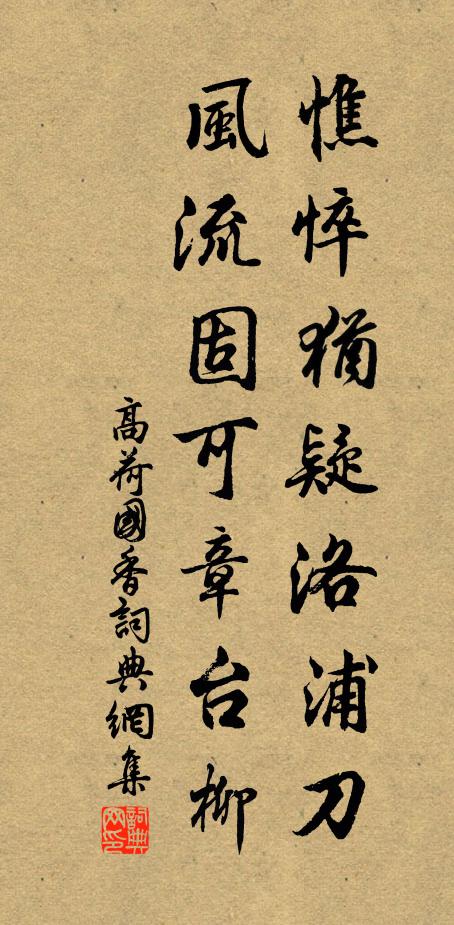 憔悴猶疑洛浦刀
風流固可章台柳
高荷國香詞典網集
詞典網印